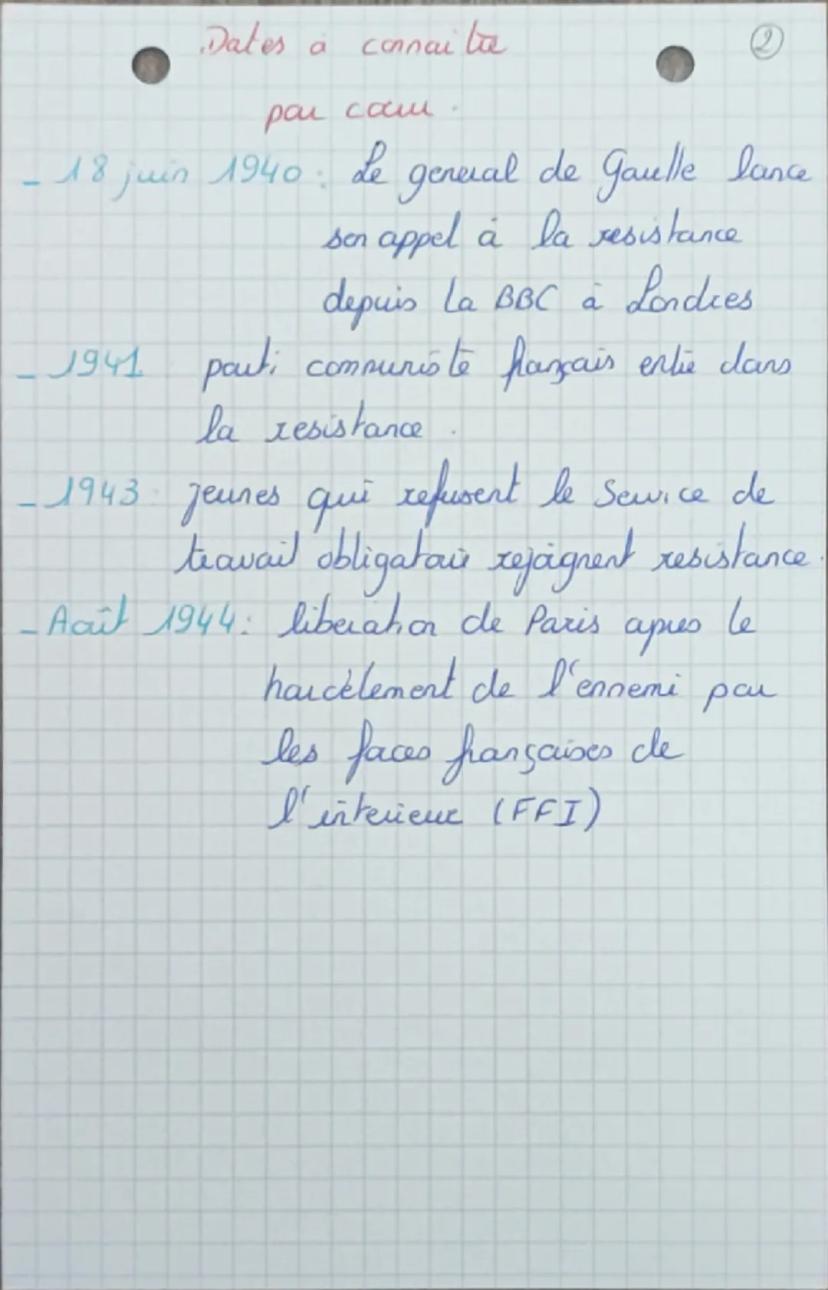 Dates à connaitre
par cœur.
②
- 18 juin 1940 : Le general de Gaulle lance
son appel à la resistance
depuis la BBC à Londres
- 1941 parti communiste français entre dans
la resistance.
- 1943 : jeunes qui refusent le service de
travail obligatoire rejoignent resistance.
- Août 1944 : liberation de Paris apres le
harcèlement de l'ennemi par
les forces françaises de
l'interieur (FFI)